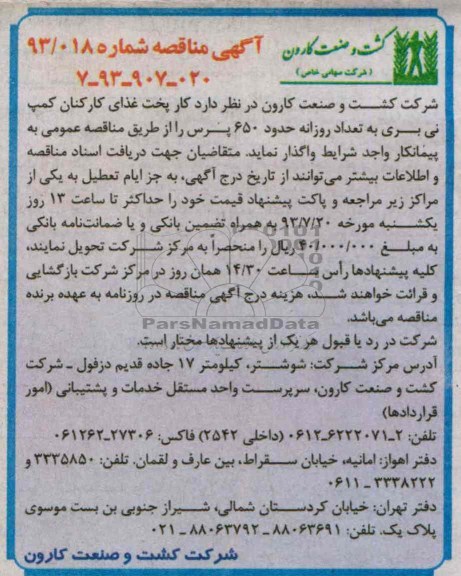 کشت و صنعت کارون
(شرکت سهامی خاص)
آگهی مناقصه شماره ۹۳/۰۱۸
۷-۹۳-۹۰۷-۰۲۰
شرکت کشت و صنعت کارون در نظر دارد کار پخت غذای کارکنان کمپ
نی بری به تعداد روزانه حدود ۶۵۰ پرس را از طریق مناقصه عمومی به
پیمانکار واجد شرایط واگذار نماید. متقاضیان جهت دریافت اسناد مناقصه
و اطلاعات بیشتر می‌توانند از تاریخ درج آگهی، به جز ایام تعطیل به یکی از
مراکز زیر مراجعه و پاکت پیشنهاد قیمت خود را حداکثر تا ساعت ۱۳ روز
یکشنبه مورخه ۹۳/۷/۲۰ به همراه تضمین بانکی و یا ضمانت‌نامه بانکی
به مبلغ ریال را منحصراً به مرکز شرکت تحویل نمایند،
کلیه پیشنهادها رأس ساعت ۱۴/۳۰ همان روز در مرکز شرکت بازگشایی
و قرائت خواهند شد، هزینه درج آگهی مناقصه در روزنامه به عهده برنده
مناقصه می‌باشد.
ParsNamadData
شرکت در رد یا قبول هر یک از پیشنهادها مختار است.
آدرس مرکز شرکت: شوشتر، کیلومتر ۱۷ جاده قدیم دزفول ـ شرکت
کشت و صنعت کارون، سرپرست واحد مستقل خدمات و پشتیبانی (امور
قراردادها)
تلفن: ۲-۶۲۲۲۰۷۱-۰۶۱۲ (داخلی ۲۵۴۲) فاکس: ۲۷۳۰۶-۰۶۱۲۶۲
دفتر اهواز: امانیه، خیابان سقراط، بین عارف و لقمان. تلفن: ۳۳۳۵۸۵۰ و
۳۳۳۸۲۲۲ - ۰۶۱۱
دفتر تهران: خیابان کردستان شمالی، شیراز جنوبی بن بست موسوی
پلاک یک. تلفن: ۸۸۰۶۳۶۹۱ - ۸۸۰۶۳۷۹۲ - ۰۲۱
شرکت کشت و صنعت کارون